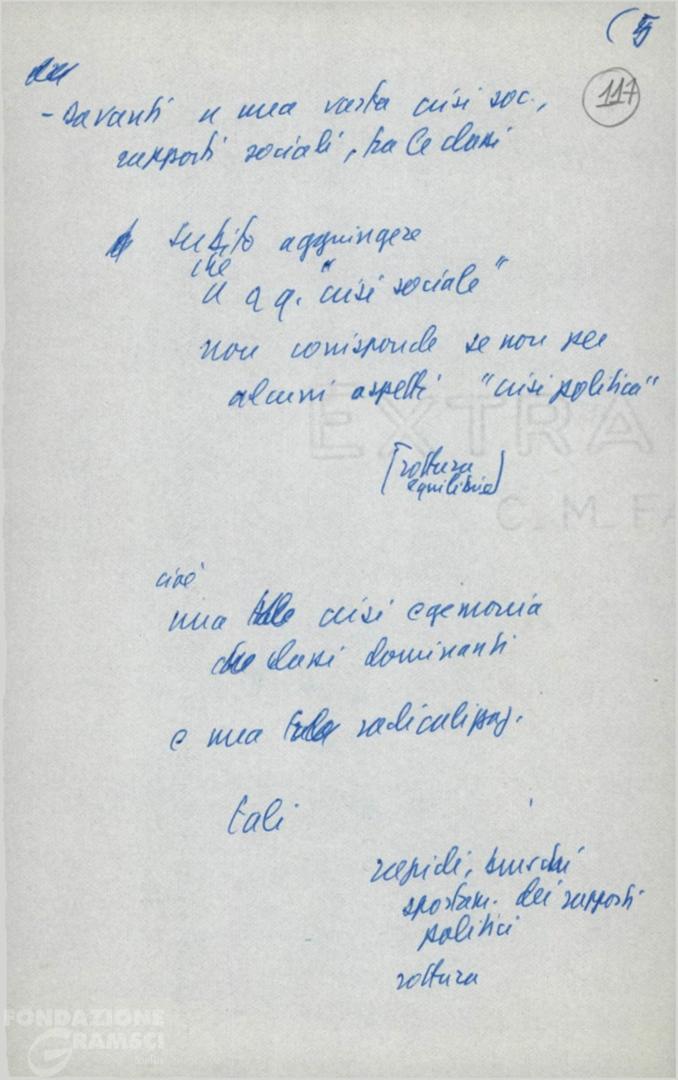 (5
117
- davanti a una vasta crisi soc.,
rapporti sociali, tra le classi
subito aggiungere
che
a q. "crisi sociale"
non corrisponde se non per
alcuni aspetti "crisi politica"
EXTRA
[rottura
equilibrio]
C. M. FA
cioè
una tale crisi egemonia
classi dominanti
e una tale radicalizzaz.
tali
rapidi, bruschi
spostam. dei rapporti
politici
rottura
FONDAZIONE
GRAMSCI